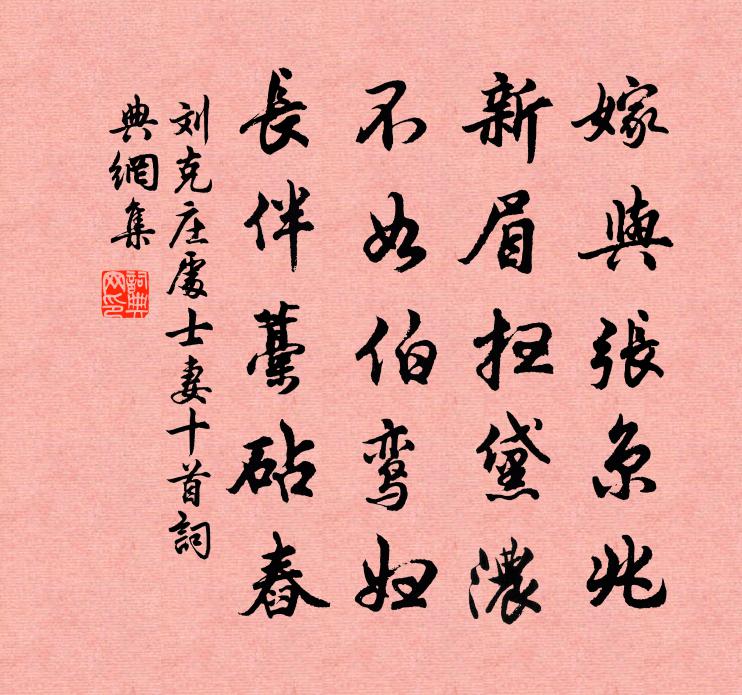 嫁與張京兆
新眉扫黛濃
不如伯鸾妇
長伴藁砧舂
刘克庄處士妻十首詞
典網集
詞典網印